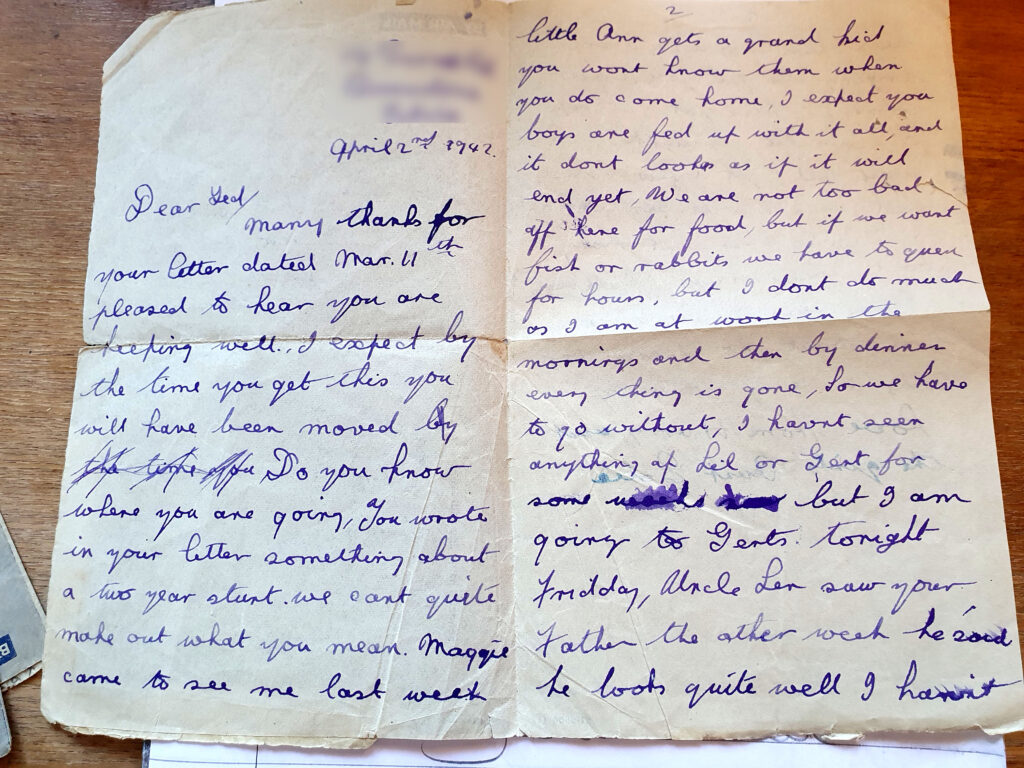 April 2nd 1942.
Dear Ted/
many thanks for
your letter dated Mar. 11th
pleased to hear you are
keeping well., I expect by
the time you get this you
will have been moved by
the time you Do you know
where you are going, You wrote
in your letter something about
a two year stunt. we cant quite
make out what you mean. Maggie
came to see me last week
2
little Ann gets a grand kid
you wont know them when
you do come home, I expect you
boys are fed up with it all, and
it dont looks as if it will
end yet, We are not too bad
off here for food, but if we want
fish or rabbits we have to queu
for hours, but I dont do much
as I am at work in the
mornings and then by dinner
every thing is gone, So we have
to go without, I havnt seen
anything of Lil or Gert for
some but I am
going to Gerts. tonight
Fridday, Uncle Len saw your
Father the other week he said
he looks quite well I havnt